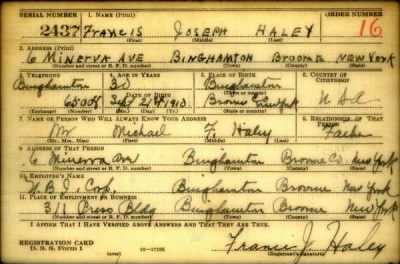 SERIAL NUMBER 1. NAME (Print) ORDER NUMBER
2437 FRANCIS JOSEPH HALEY 16
(First) (Middle) (Last)
2. ADDRESS (Print)
6 MINERVA AVE BINGHAMTON BROOME NEW YORK
(Number and street or R. F. D. number) (Town) (County) (State)
3. TELEPHONE 4. AGE IN YEARS 5. PLACE OF BIRTH 6. COUNTRY OF CITIZENSHIP
Binghamton 30 Binghamton
DATE OF BIRTH
6500R Sept 21 1910 Broome New York U S A
(Exchange) (Number) (Mo.) (Day) (Yr.) (State or country)
7. NAME OF PERSON WHO WILL ALWAYS KNOW YOUR ADDRESS 8. RELATIONSHIP OF THAT PERSON
Mr Michael F. Haley Father
(Mr., Mrs., Miss) (First) (Middle) (Last)
9. ADDRESS OF THAT PERSON
6 Minerva Ave Binghamton Broome Co. New York
(Number and street or R. F. D. number) (Town) (County) (State)
10. EMPLOYER'S NAME
Corp. Binghamton Broome New York
11. PLACE OF EMPLOYMENT OR BUSINESS
311 Press Bldg Binghamton Broome New York
(Number and street or R. F. D. number) (Town) (County) (State)
I AFFIRM THAT I HAVE VERIFIED ABOVE ANSWERS AND THAT THEY ARE TRUE.
REGISTRATION CARD
D. S. S. FORM 1 (over) 16—17105 Francis J. Haley
(Registrant's signature)